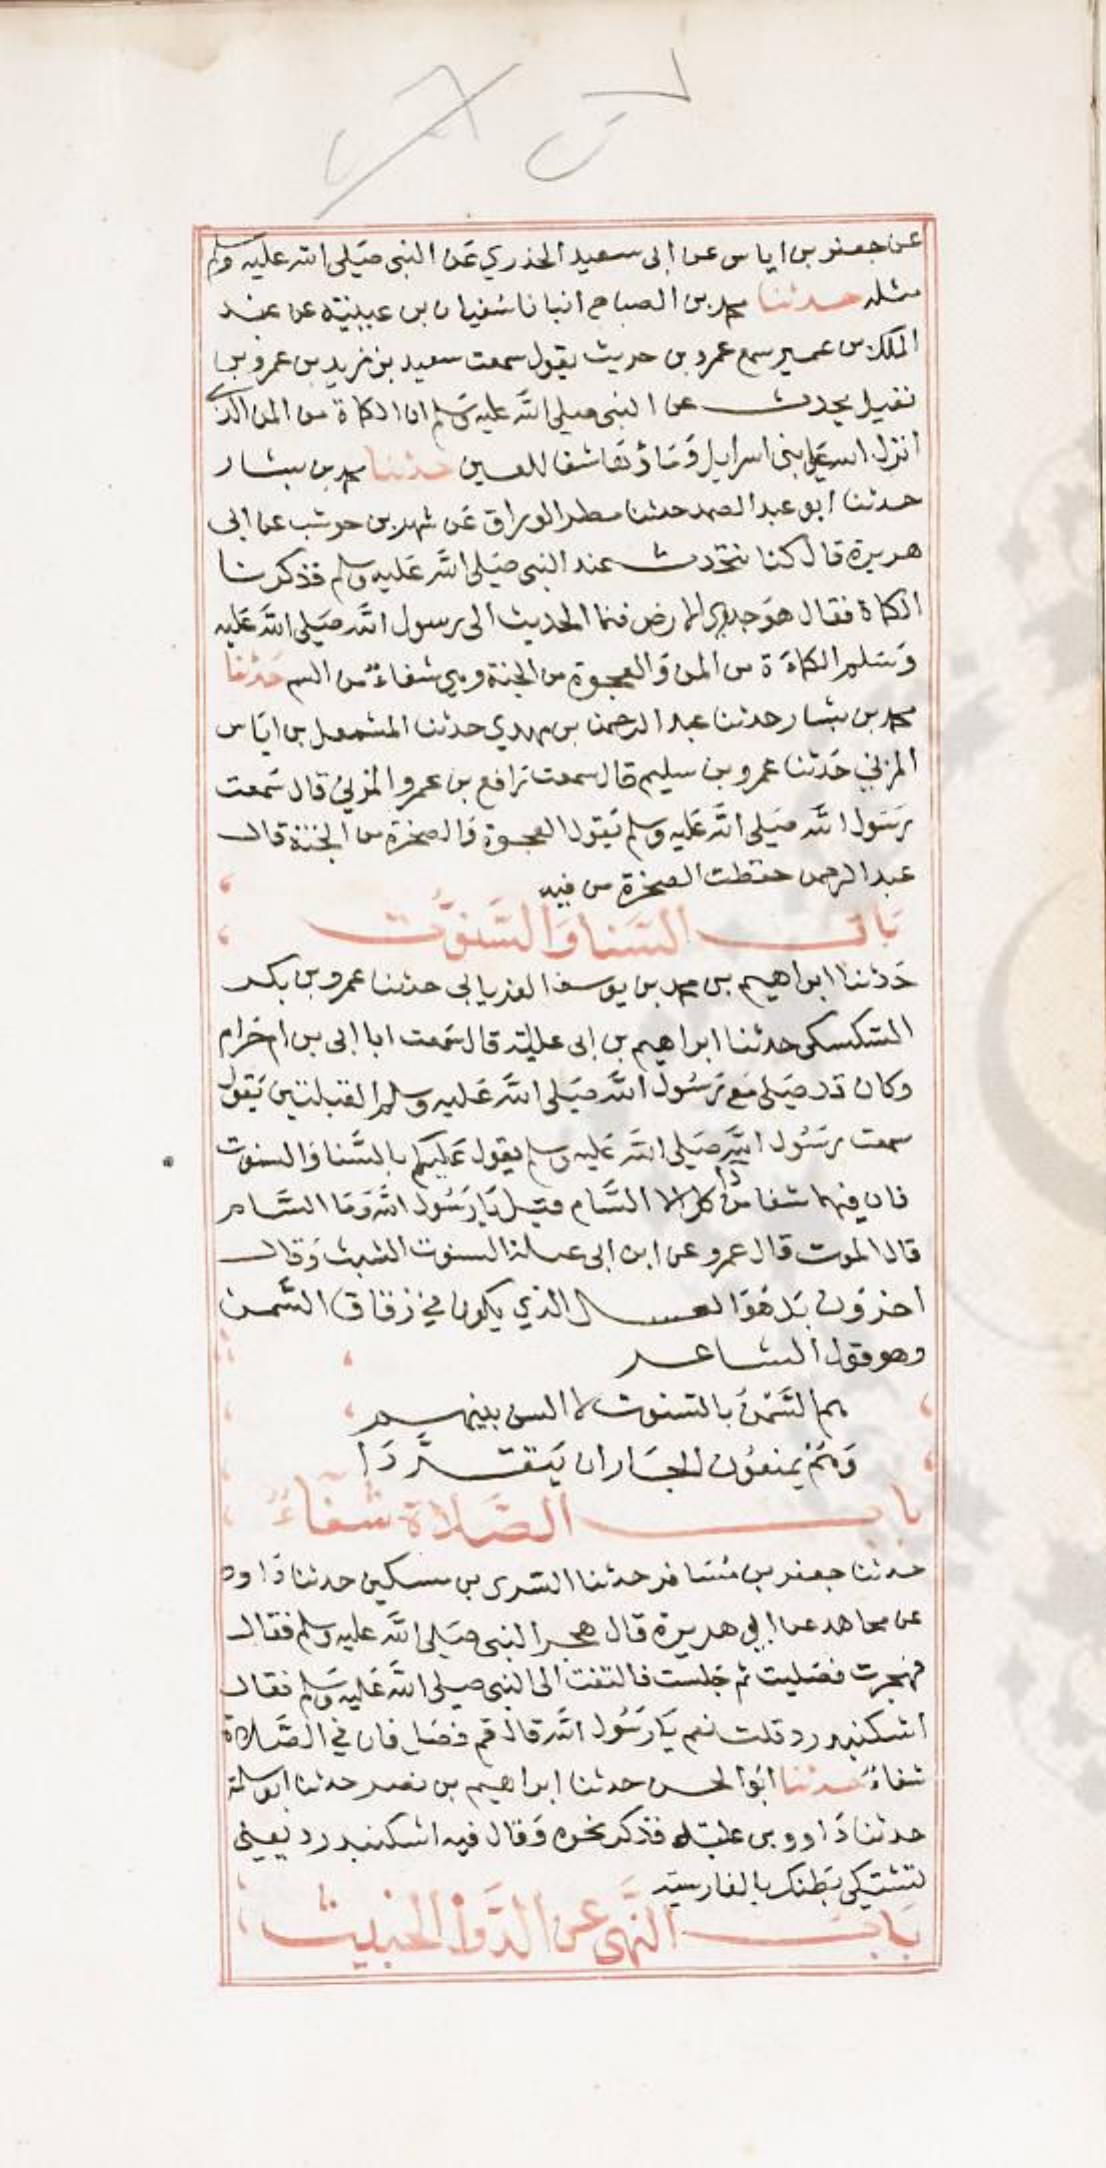 عن جعفر بن اياس عن ابى سعيد الخدري عَن النبى صَلى الله عليه وسلم
مثله حدثنا محمد بن الصباح انبانا سُفيان بن عيينة عن عبد
الملك بن عمير سمع عمرو بن حريث يقول سمعت سعيد بن زيد بن عمرو بن
نفيل يحدث عن النبى صلى الله عليه وَسَلم ان الكماة من المن الذي
انزل الله عَلى بنى اسرايل وَمَاؤهَا شفا للعين حَدثنا محمد بن بشار
حدثنا ابو عبد الصمد حدثنا مطر الوراق عَن شهر بن حوشب عن ابى
هريرة قال كنا نتحدث عند النبى صَلى الله عَليه وسلم فذكرنا
الكماة فقال هوَ جدرى الارض فنما الحديث الى رسول الله صَلى الله عَليه
وَسَلم الكماَة من المن وَالعجوة من الجنة وهي شفاءٌ من السم حَدثنا
محمد بن بشار حدثنا عبد الرحمن بن مهدي حدثنا المشمعل بن ايَاس
المزني حَدثنا عمرو بن سليم قال سمعت رافع بن عمرو المزنيُ قال سَمعت
رَسَول الله صَلى الله عَليه وسلم يَقول العجوة وَالصخرة من الجنة قال
عبد الرحمن حفظت الصخرة من فيه
بَاب السَّنا وَالسَّنوَّت
حَدثنا ابراهيم بن محمد بن يوسف الفريابى حدثنا عمرو بن بكر
السَّكسكى حدثنا ابراهيم بن ابى عبلة قال سَمعت ابا ابى بن ام حَرام
وكان قد صَلى مَع رَسُول الله صَلى الله عَليه وسلم القبلتين يَقول
سمعت رسَُول الله صَلى الله عَليه وسلم يقول عَليكم بالسَّنا وَالسنوت
فان فيهما شفا من كل داء الا السَّام قيل يَا رَسُول الله وَمَا السَّام
قال الموت قال عمرو عن ابن ابى عبلة السنوت الشبث وَقال
اخرَون بَل هُوَ العسل الذي يكون في زقاق السَّمن
وهو قول الشاعر
هم السَّمْنُ بالسَّنوت لا السن بينهم
وَهُمْ يمنعُون الجَار ان يَتقَرَّدَا
باب الصَّلاة شفَاءٌ
حدثنا جعفر بن مُسَافر حدثنا السَّرى بن مسكين حدثنا ذَاود
عن مجاهد عن ابي هريرة قال هجر النبى صَلى الله عليه وسلم فقال
فهجرت فصَليت ثم جَلست فالتفت الى النبى صلى الله عَليه وَسَلم فقال
اشكنبدرد قلت نعم يَا رَسُول الله قال قم فصَل فان في الصَّلاة
شفاءٌ حَدثنا ابَو الحسن حدثنا ابراهيم بن نصر حدثنا ابو سلمة
حدثنا دَاوود بن علبَة فذكر نحوه وَقال فيه اشكنبدرد يعينى
تشتكي بَطنك بالفارسيَة
بَابُ النَّهى عن الدَّوَاْ الخبيث